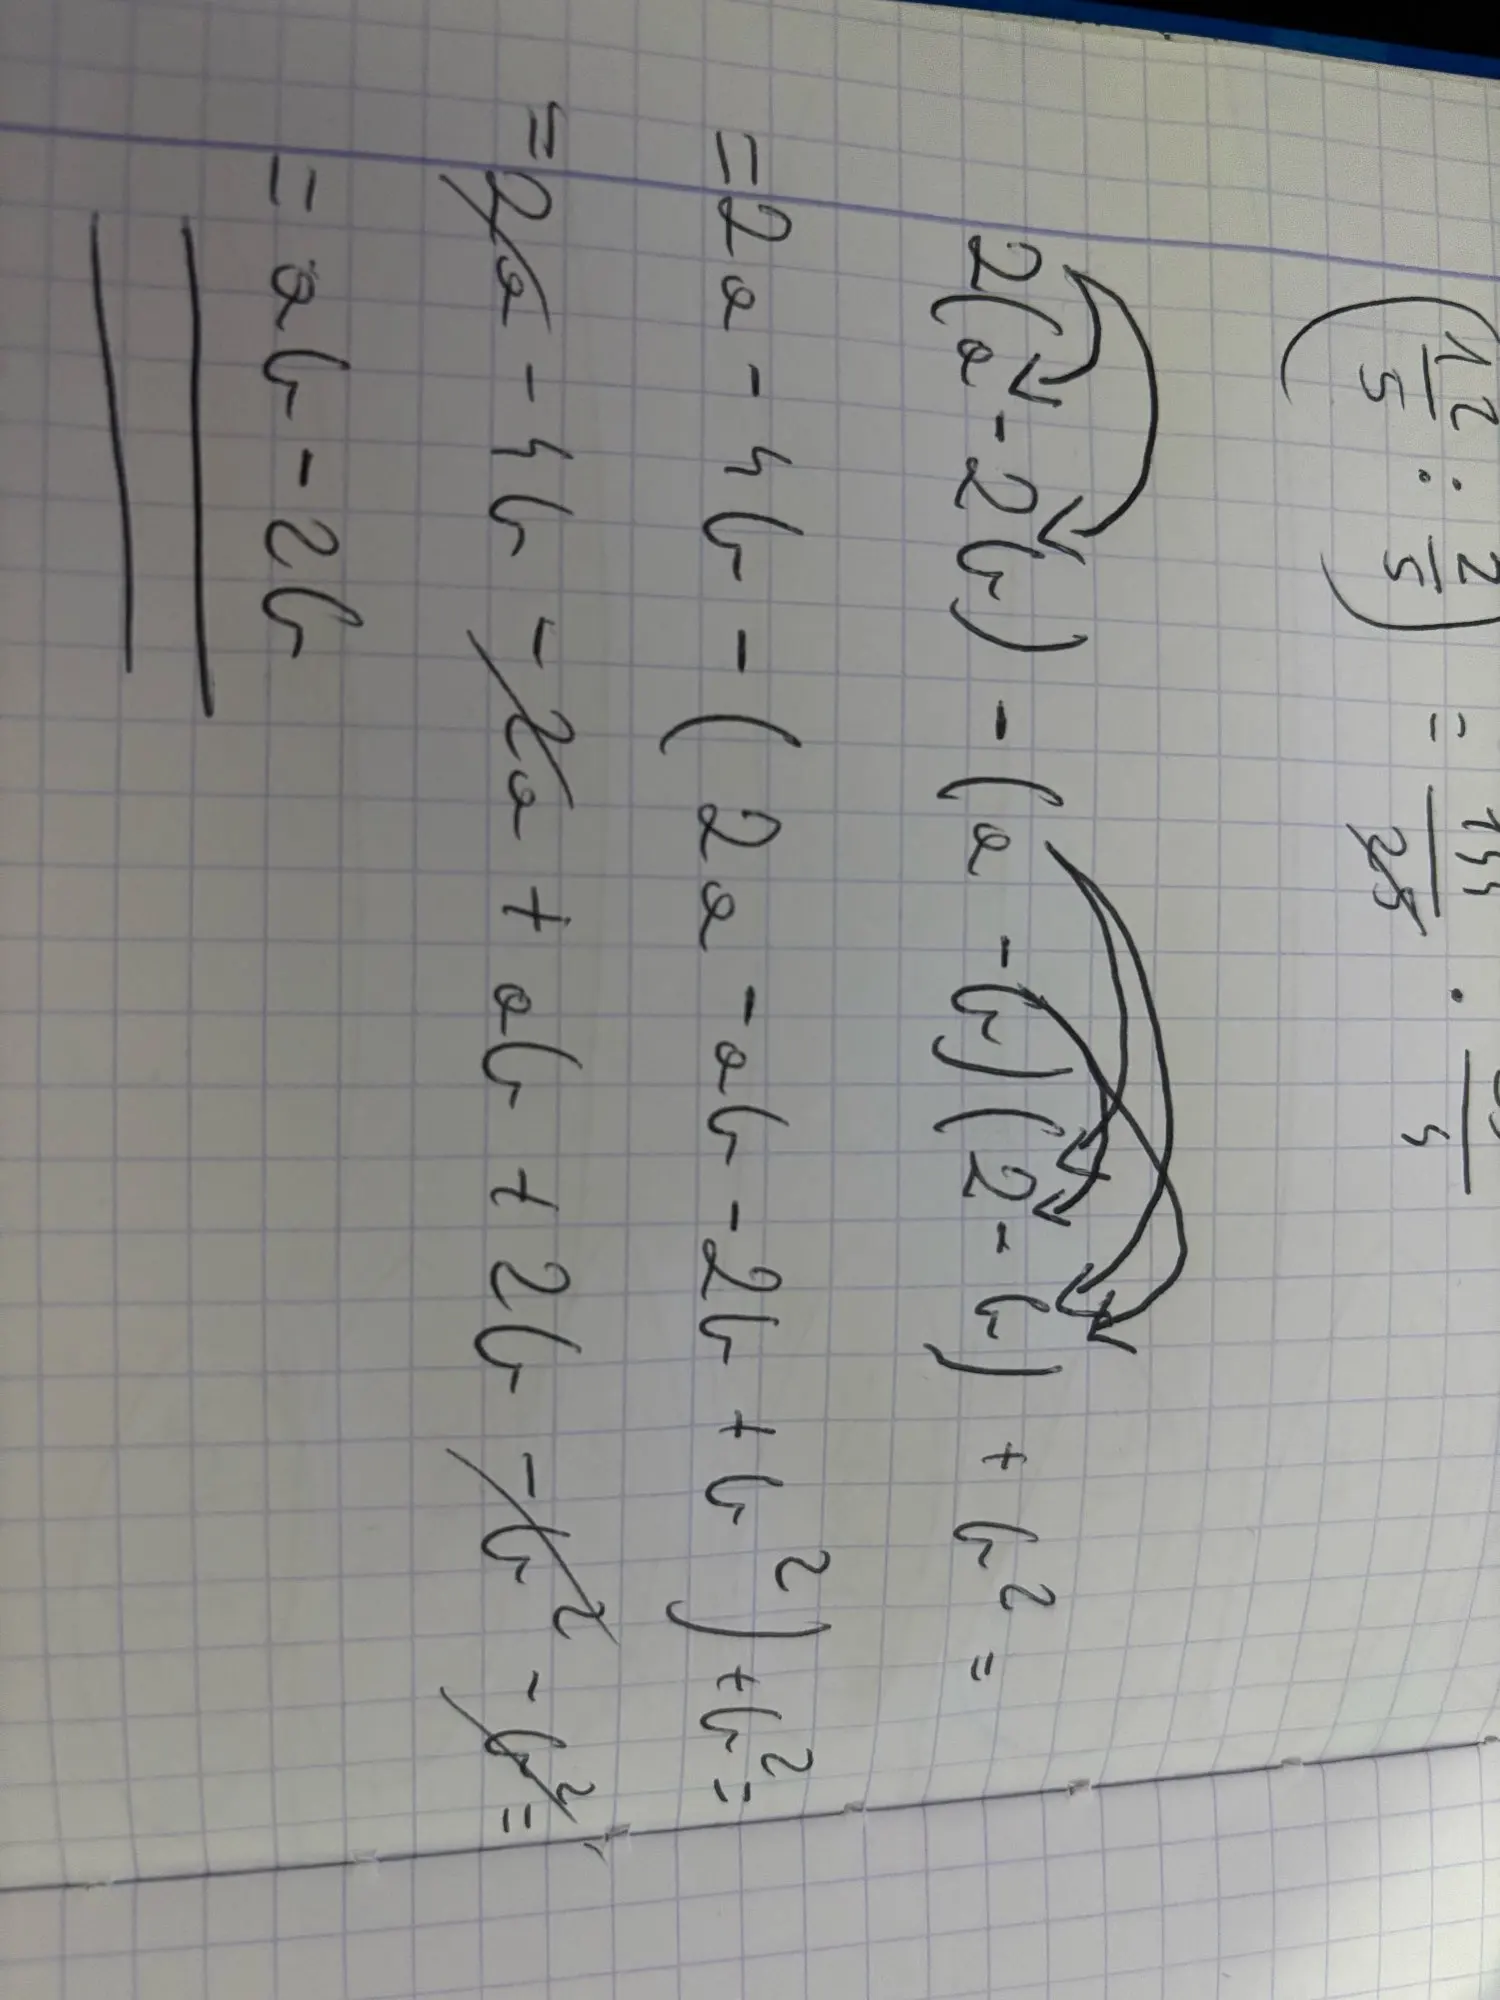 (12/5 : 2/5) = 144/25 · /4
2(a - 2b) - (a - b)(2 - b) + b² =
= 2a - 4b - (2a - ab - 2b + b²) + b² =
= 2a - 4b - 2a + ab + 2b - b² - b² =
= ab - 2b